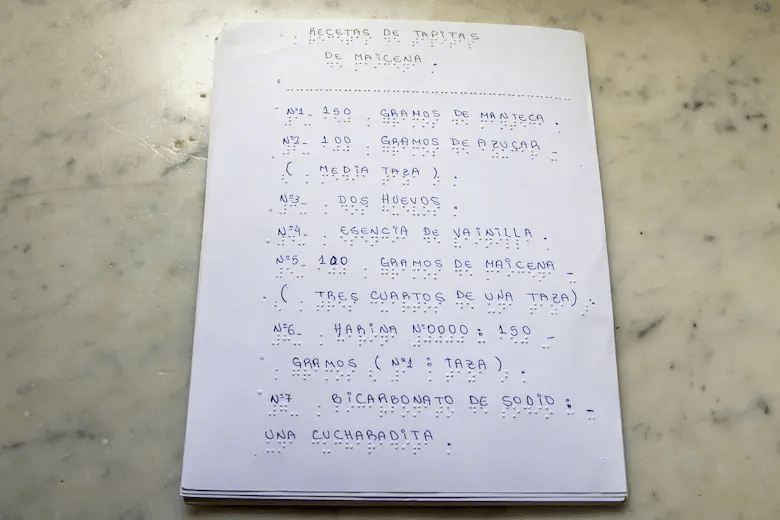 RECETAS DE TAPITAS
DE MAICENA.
N°1_ 150 GRAMOS DE MANTECA.
N°2_ 100 GRAMOS DE AZUCAR _
( MEDIA TAZA ).
N°3_ DOS HUEVOS.
N°4_ ESENCIA DE VAINILLA.
N°5_ 100 GRAMOS DE MAICENA _
( TRES CUARTOS DE UNA TAZA).
N°6_ HARINA N°0000: 150 _
GRAMOS ( N°1 : TAZA ).
N°7 BICARBONATO DE SODIO: _
UNA CUCHARADITA.